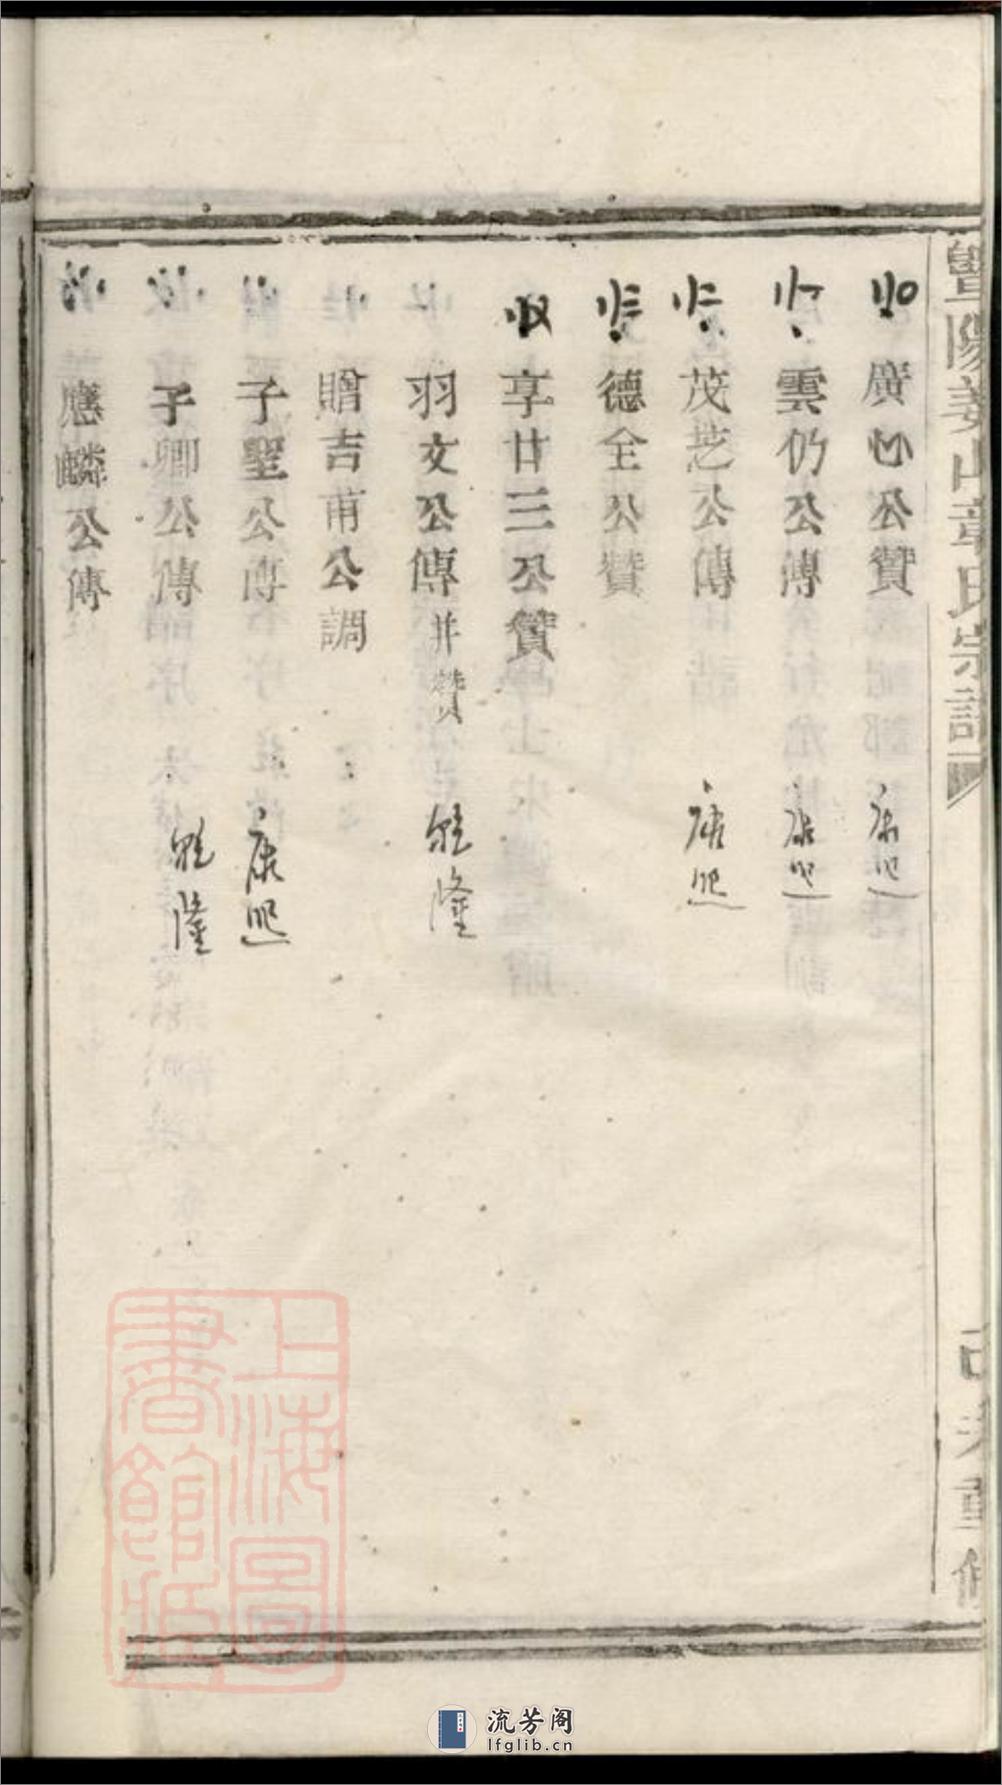 廣心公贊 康熙
雲仍公傳 康熙
茂芝公傳 康熙
德全公贊
享廿三公贊
羽文公傳并贊 乾隆
贈吉甫公調
子聖公傳 康熙
子卿公傳 乾隆
應麟公傳
暨陽姜山章氏宗譜
重修
上海圖書館藏
流芳阁
lfglib.cn